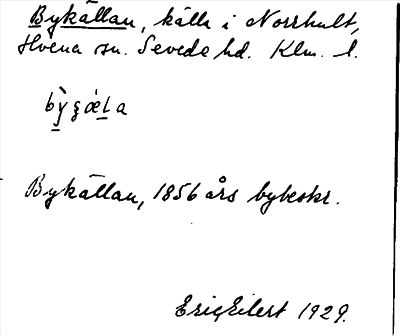 Bykällan, källa i Norrhult,
Hvena sn. Sevede hd. Klm. l.
Bykällan, 1856 års bybeskr.
Eric Eilert 1929.